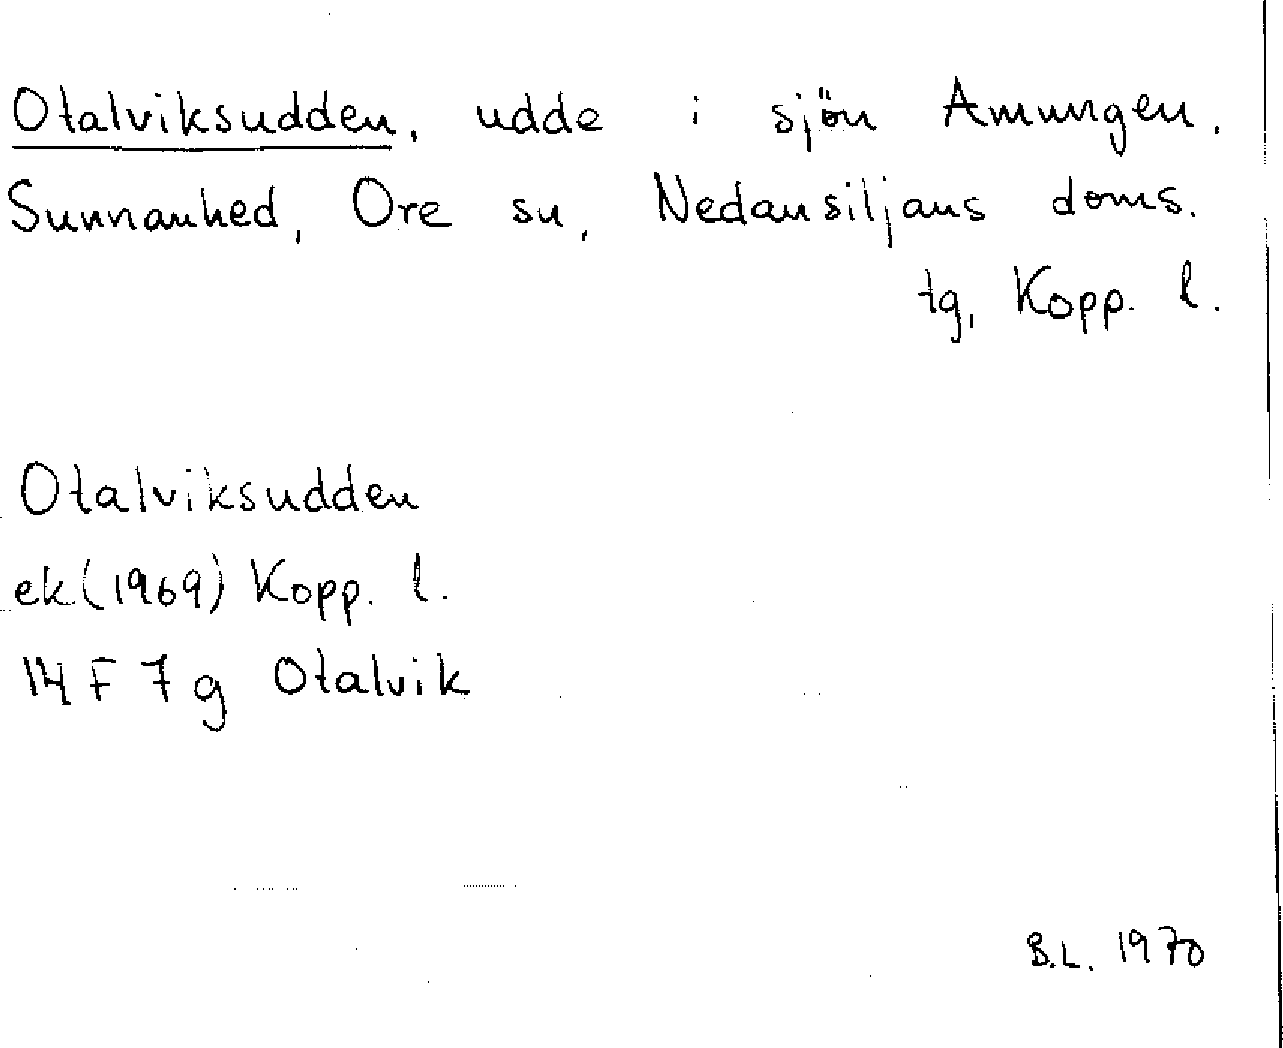 Otalviksudden, udde i sjön Amungen,
Sunnanhed, Ore sn, Nedansiljans doms.
tg, Kopp. l.
Otalviksudden
ek (1969) Kopp. l.
14 F 7 g Otalvik
B.L. 1970